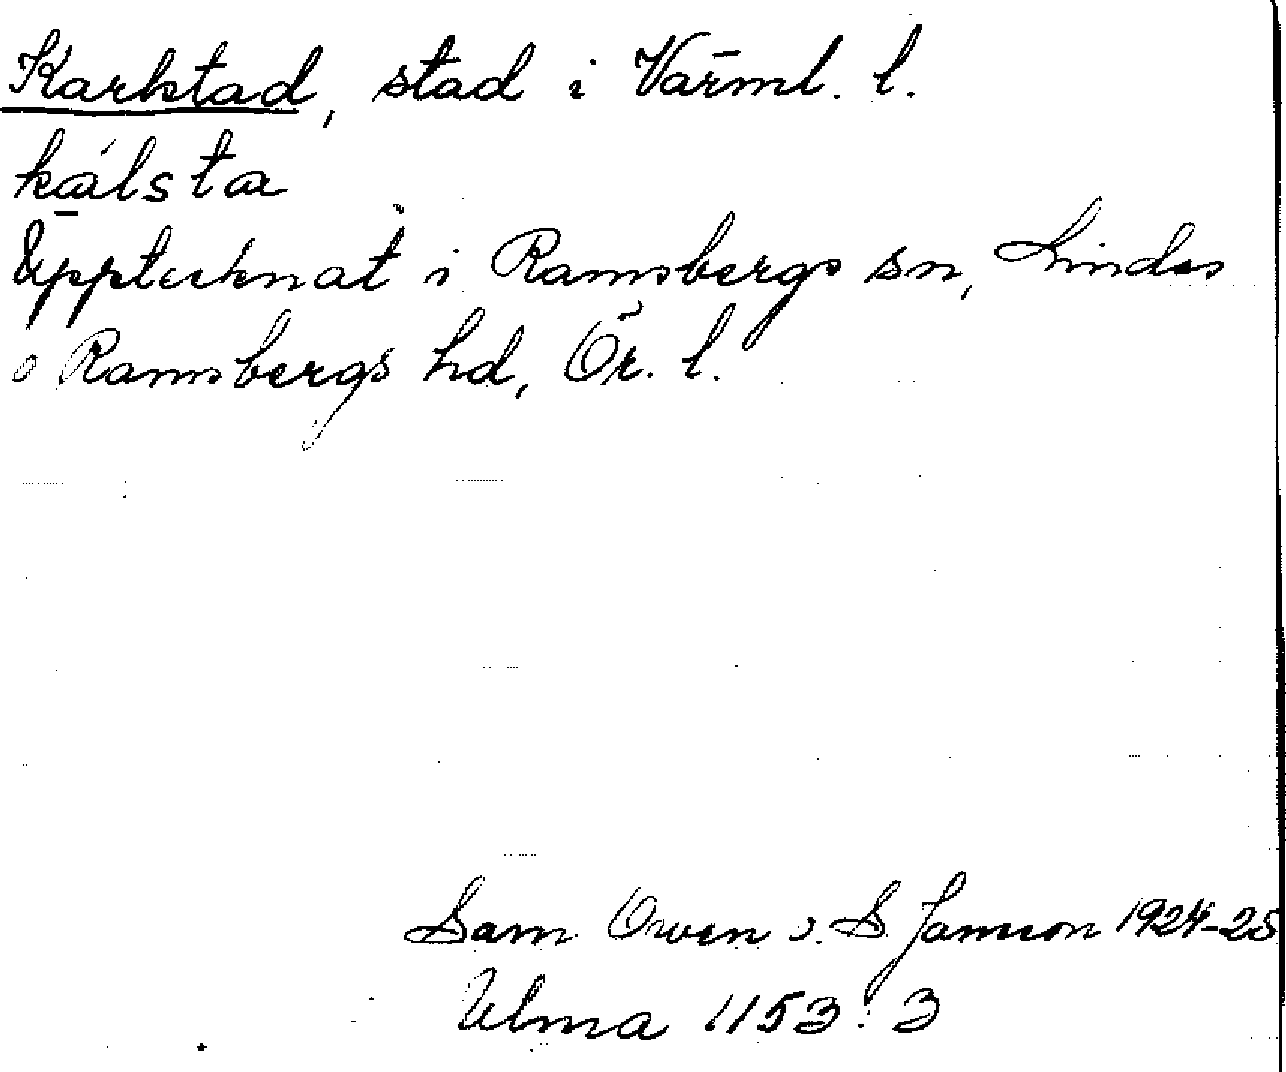 Karlstad, stad i Värml. l.
kálsta
Upptecknat i Ramsbergs sn, Lindes
o Ramsbergs hd, Ör. l.
Sam Owen o. S. Janson 1924-25
Ulma 1153:3